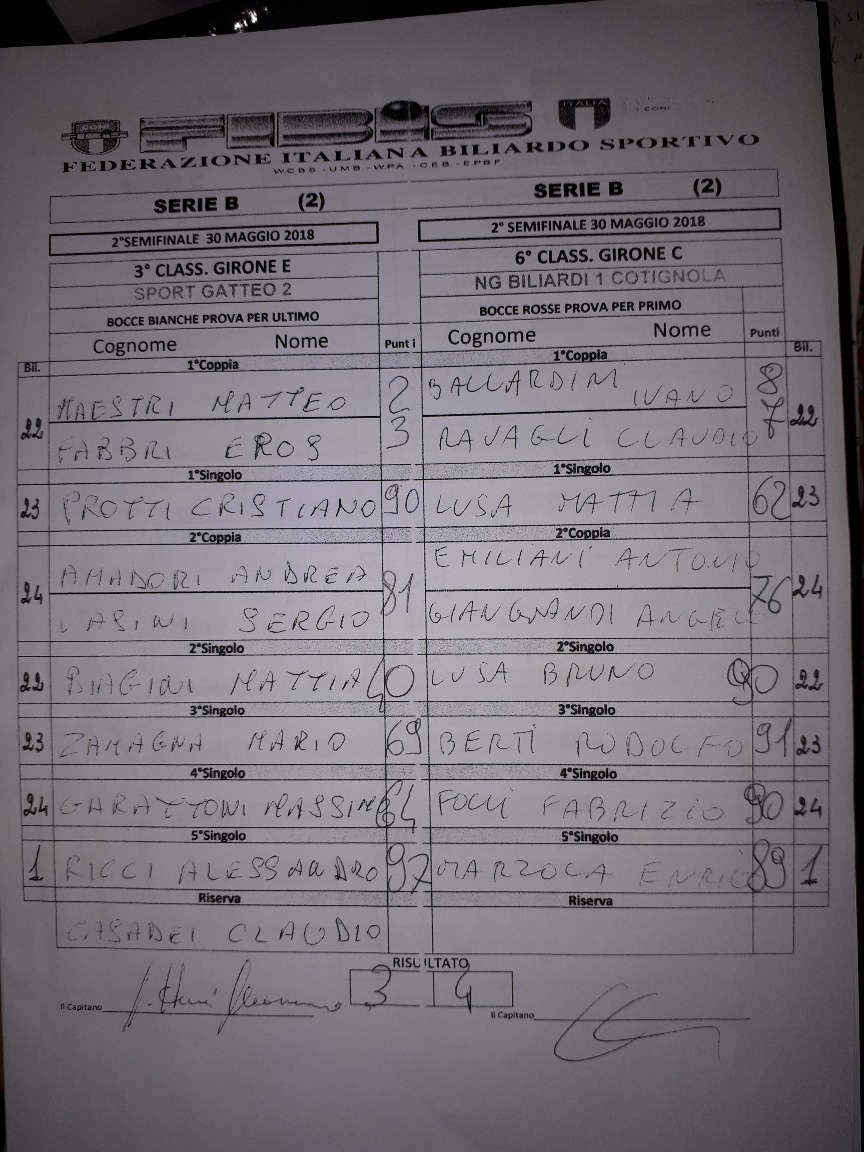 CONI
FIBiS
ITALIA
CONI
FEDERAZIONE ITALIANA BILIARDO SPORTIVO
WCBS - UMB - WPA - CEB - EPBF
SERIE B (2) SERIE B (2)
2°SEMIFINALE 30 MAGGIO 2018 2° SEMIFINALE 30 MAGGIO 2018
3° CLASS. GIRONE E 6° CLASS. GIRONE C
SPORT GATTEO 2 NG BILIARDI 1 COTIGNOLA
BOCCE BIANCHE PROVA PER ULTIMO BOCCE ROSSE PROVA PER PRIMO
Cognome Nome Punt i Cognome Nome Punti
Bil. 1°Coppia 1°Coppia Bil.
22 MAESTRI MATTEO 2 BALLARDINI IVANO 8 22
FABBRI EROS 3 RAVAGLI CLAUDIO 7
1°Singolo 1°Singolo
23 PROTTI CRISTIANO 90 LUSA MATTIA 62 23
2°Coppia 2°Coppia
24 AMADORI ANDREA 81 EMILIANI ANTONIO 76 24
VASINI SERGIO GIANGRANDI ANGELO
2°Singolo 2°Singolo
22 BIAGIONI MATTIA 40 LUSA BRUNO 90 22
3°Singolo 3°Singolo
23 ZAMAGNA MARIO 69 BERTI RODOLFO 91 23
4°Singolo 4°Singolo
24 GARATTONI MASSIMO 64 FOCCI FABRIZIO 90 24
5°Singolo 5°Singolo
1 RICCI ALESSANDRO 97 MARZOLA ENRICO 89 1
Riserva Riserva
CASADEI CLAUDIO
RISULTATO
3 4
Il Capitano Il Capitano